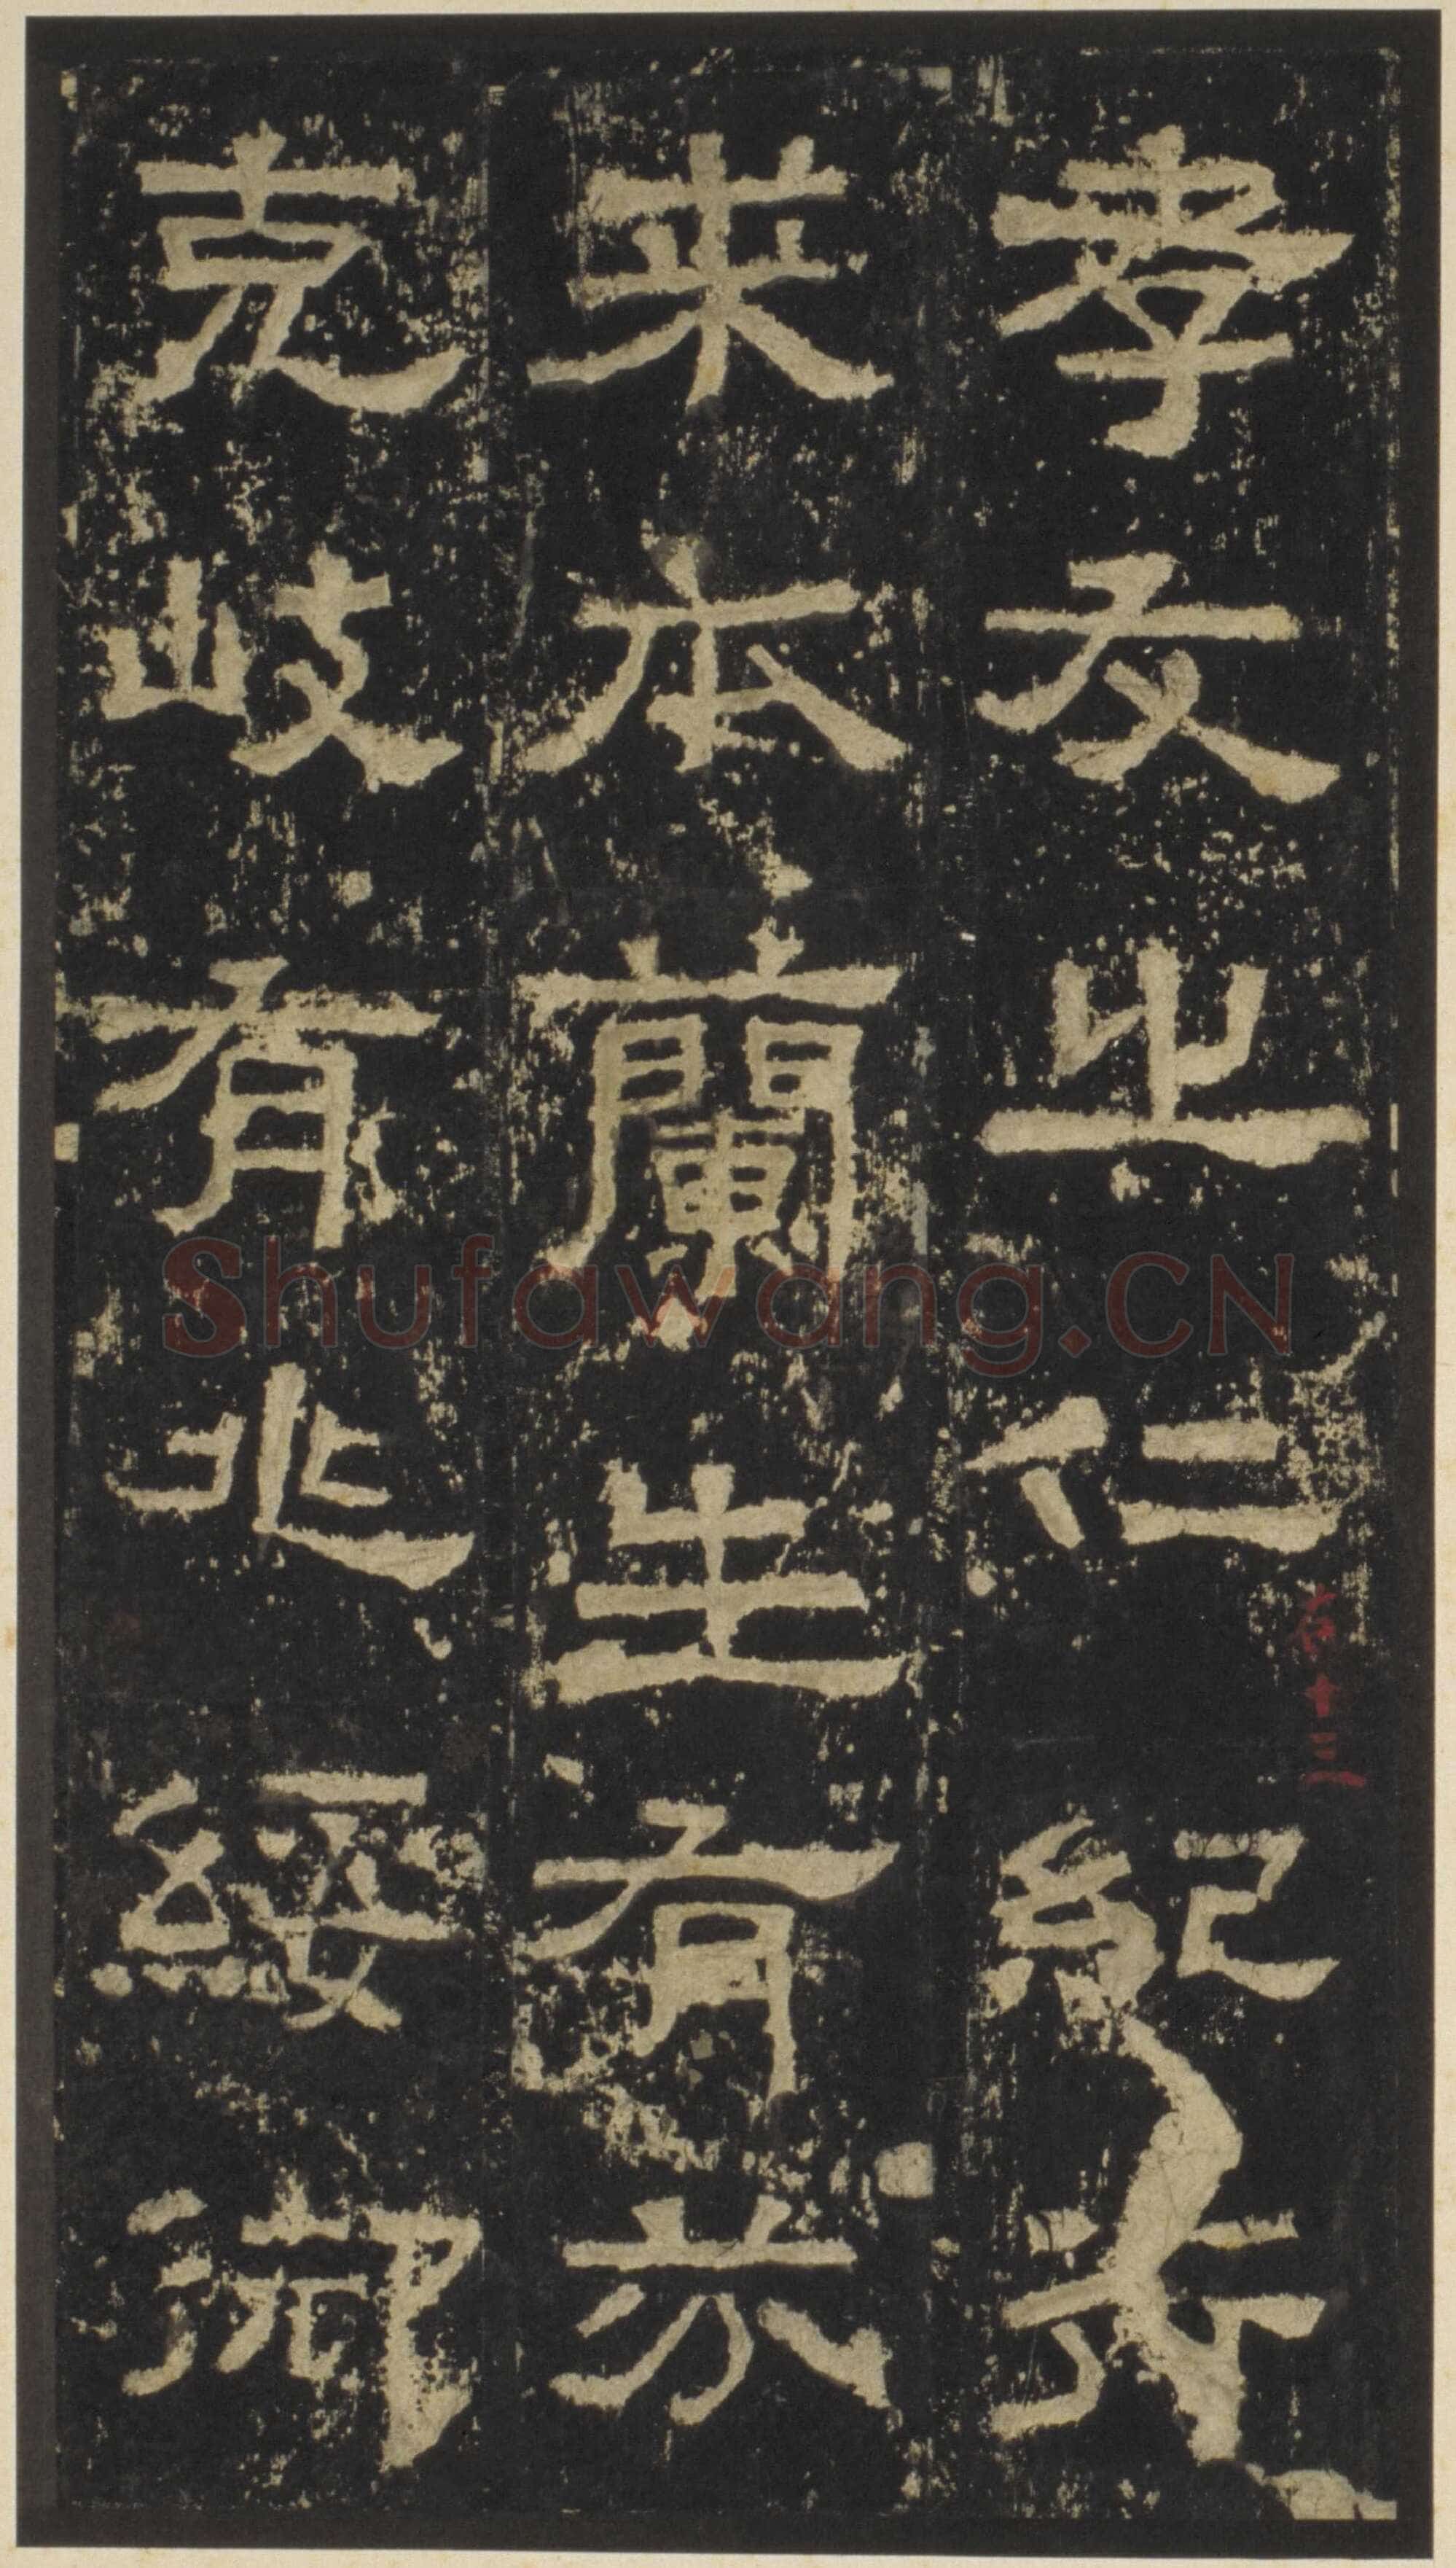 孝友之仁紀行
來本蘭生有芬
克岐有兆綏御
Shufawang.CN